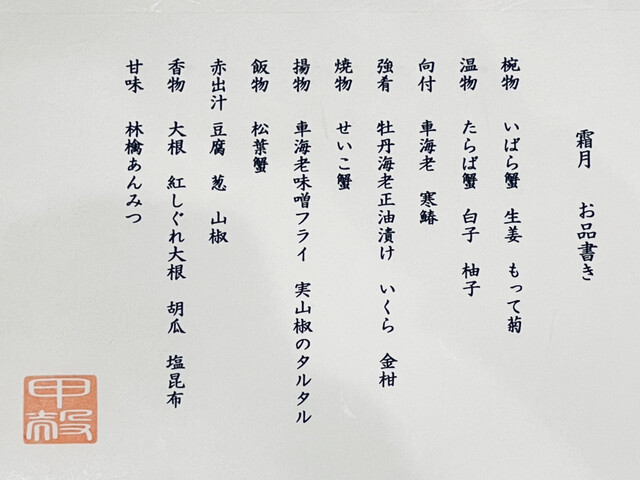 霜月 お品書き
椀物 いばら蟹 生姜 もって菊
温物 たらば蟹 白子 柚子
向付 車海老 寒鰆
強肴 牡丹海老正油漬け いくら 金柑
焼物 せいこ蟹
揚物 車海老味噌フライ 実山椒のタルタル
飯物 松葉蟹
赤出汁 豆腐 葱 山椒
香物 大根 紅しぐれ大根 胡瓜 塩昆布
甘味 林檎あんみつ
甲殻